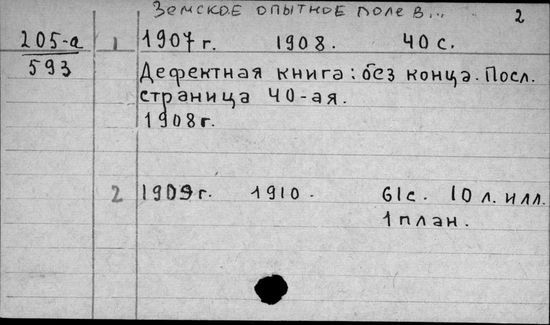 Земское опытное поле в... 2
205-а 1 1907 г. 1908. 40 с.
593 Дефектная книга: без конца. Посл.
страница 40-ая.
1908 г.
2 1909 г. 1910. 61 с. 10 л. илл.
1 план.